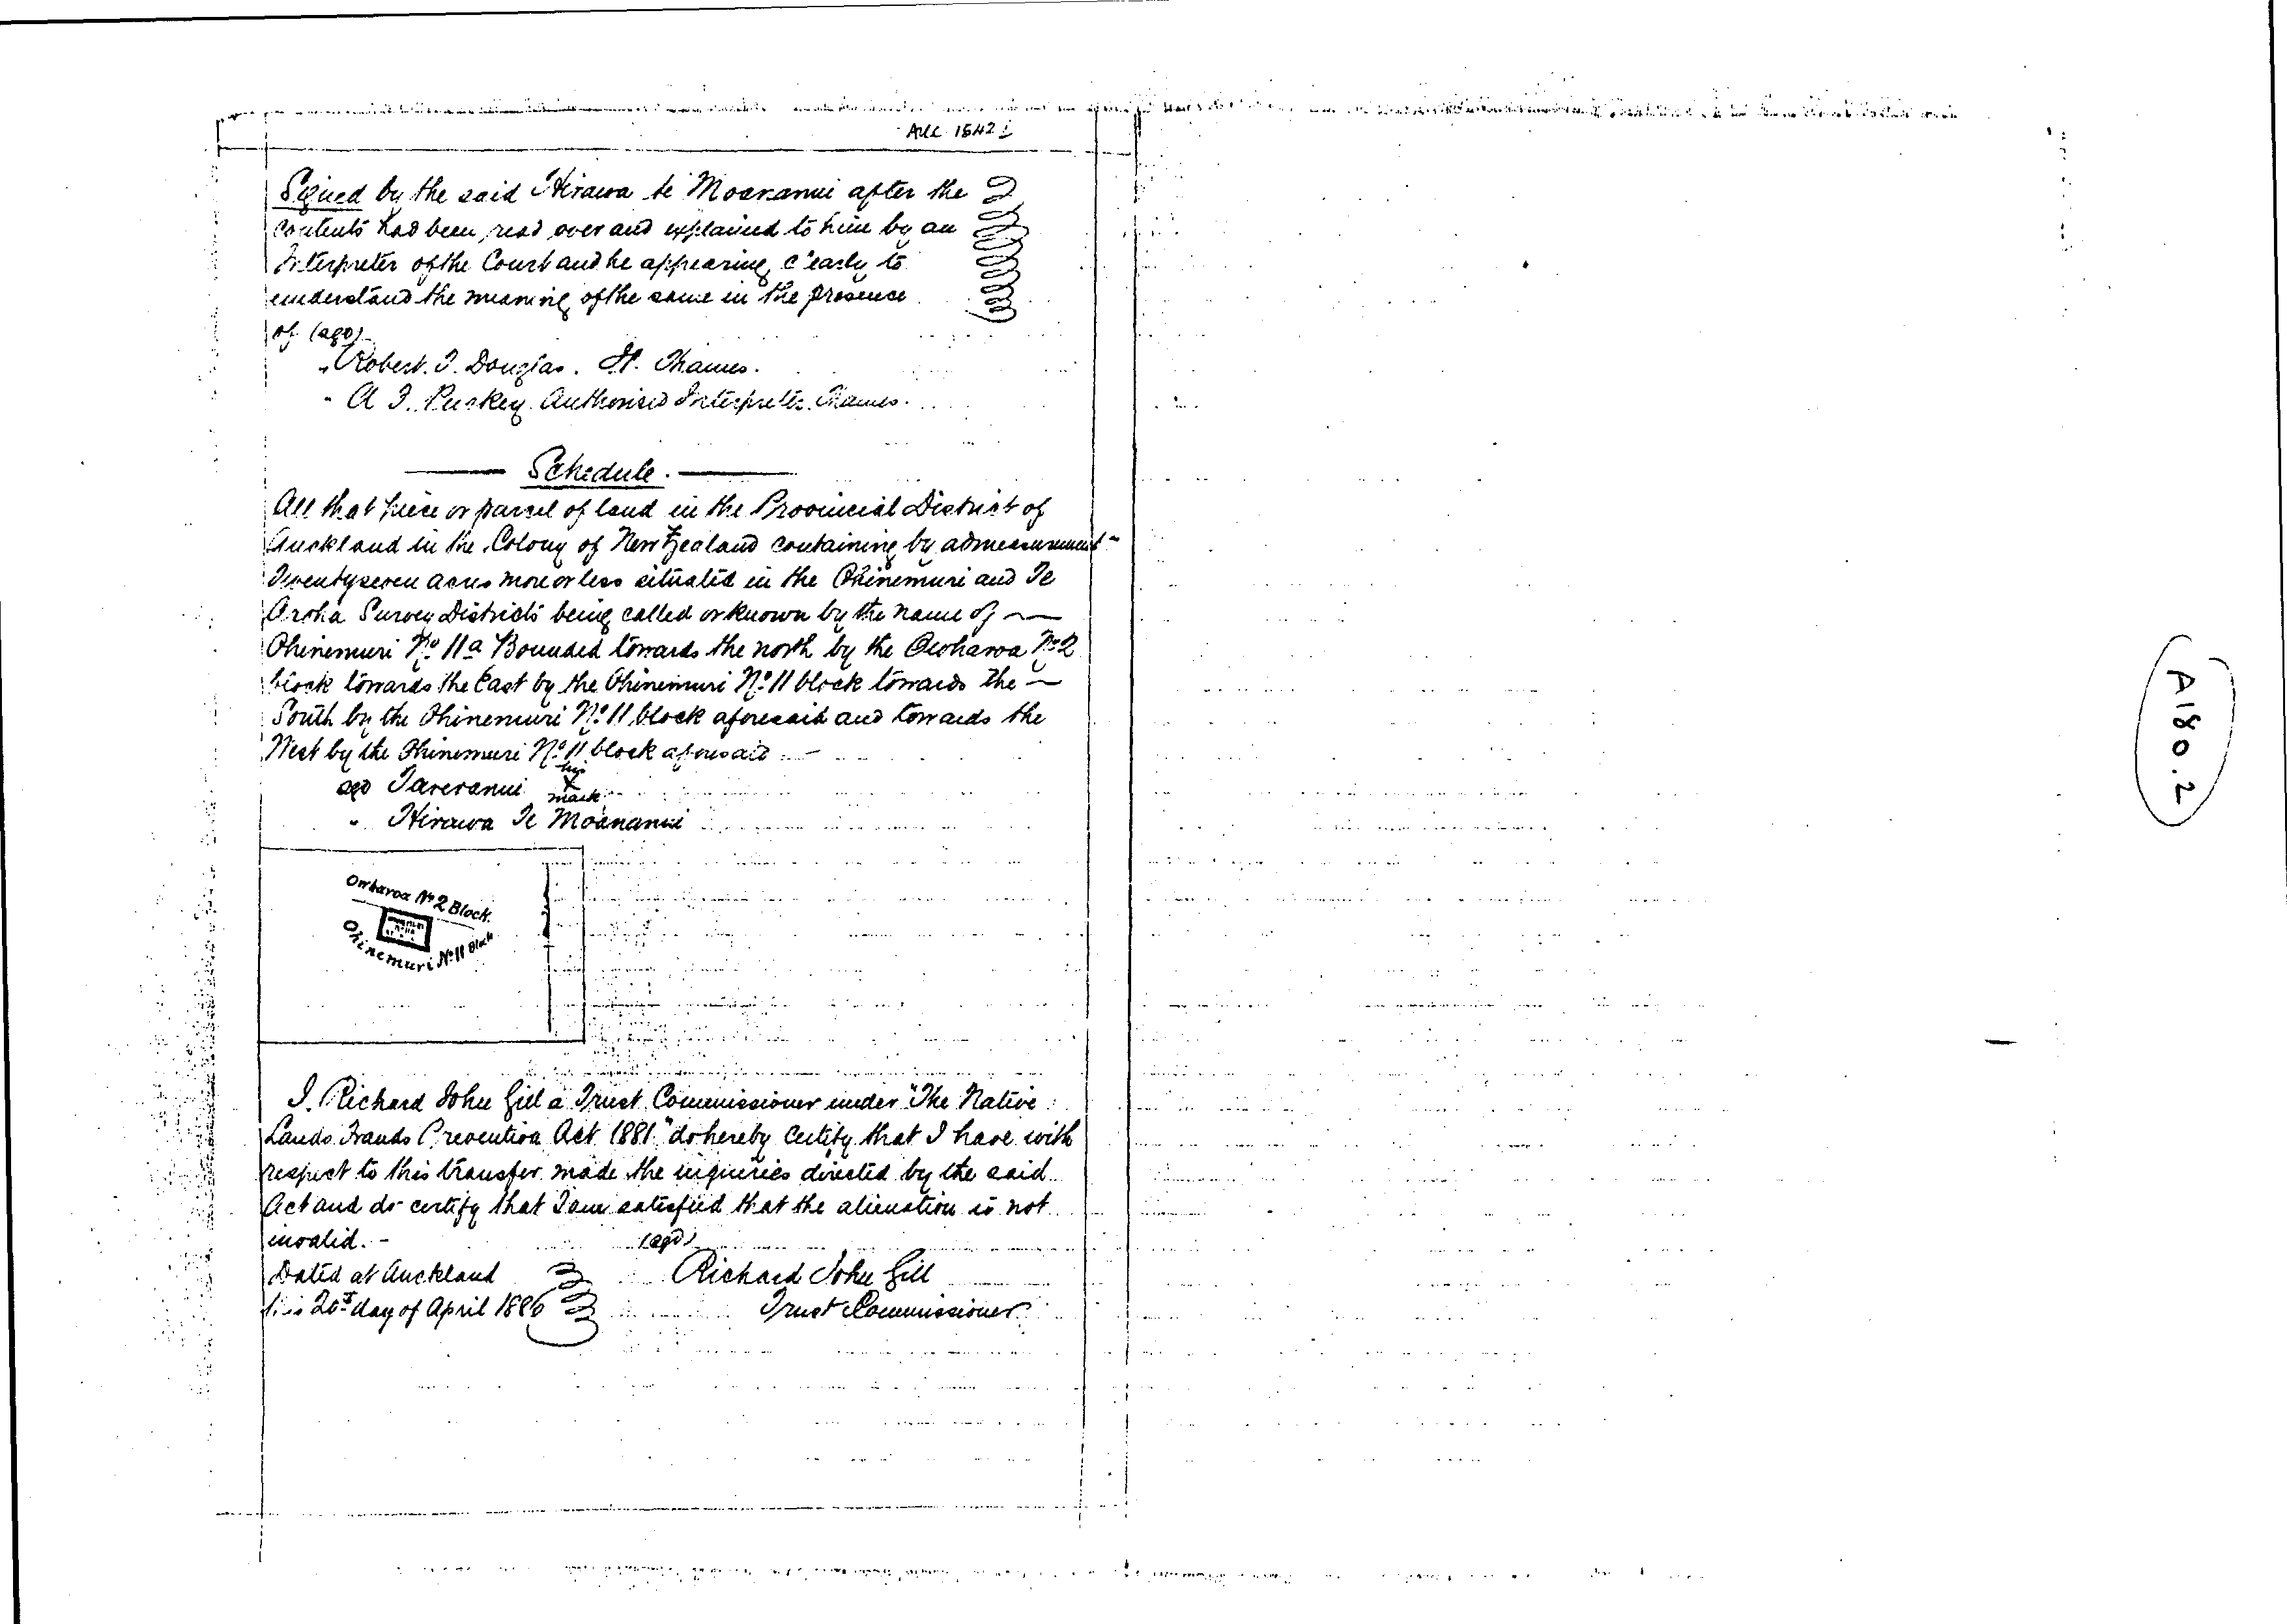 AUC 1542
Signed by the said Hirawa te Moananui after the
contents had been read over and explained to him by an
Interpreter of the Court and he appearing clearly to
understand the meaning of the same in the presence
of (sgd)
" Robert. J. Douglas. Thames.
" A J. Puckey Authorised Interpreter. Thames.
Schedule.
All that piece or parcel of land in the Provincial District of
Auckland in the Colony of New Zealand containing by admeasurement
Twentyseven acres more or less situated in the Ohinemuri and Te
Aroha Survey Districts being called or known by the name of
Ohinemuri No. 11a Bounded towards the north by the Owharoa No. 2
block towards the East by the Ohinemuri No. 11 block towards the
South by the Ohinemuri No. 11 block aforesaid and towards the
West by the Ohinemuri No. 11 block aforesaid
his
sgd Tareranui x
mark
" Hirawa Te Moananui
Owharoa No 2 Block.
Ohinemuri No. 11 Block
I. Richard John Gill a Trust Commissioner under "The Native
Lands Frauds Prevention Act 1881." do hereby certify that I have with
respect to this transfer made the inquiries directed by the said
Act and do certify that I am satisfied that the alienation is not
invalid. -
(sgd)
Dated at Auckland Richard John Gill
this 20th day of April 1886 Trust Commissioner
A180.2